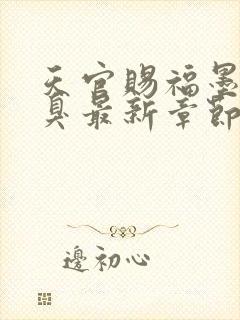 天官賜福墨
臭最新章節
邊初心